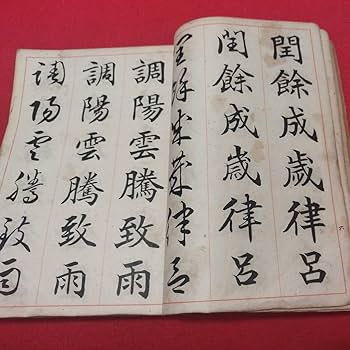 閏餘成歲律呂
閏餘成歲律呂
閏餘成歲律呂
調陽雲騰致雨
調陽雲騰致雨
調陽雲騰致雨